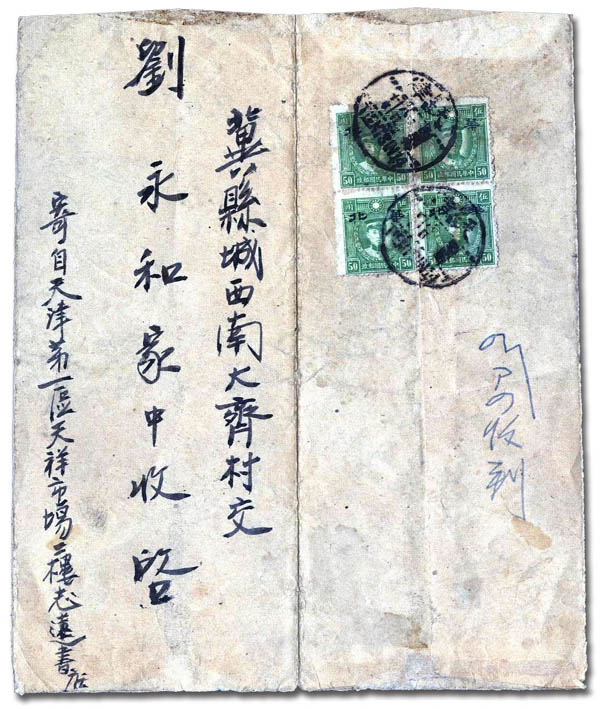 華北
50 中華民國郵政 50
華北
50 中華民國郵政 50
收到
冀縣城西南大齊村交
劉永和家中收啓
寄自天津第一區天祥市場二樓志遠書店